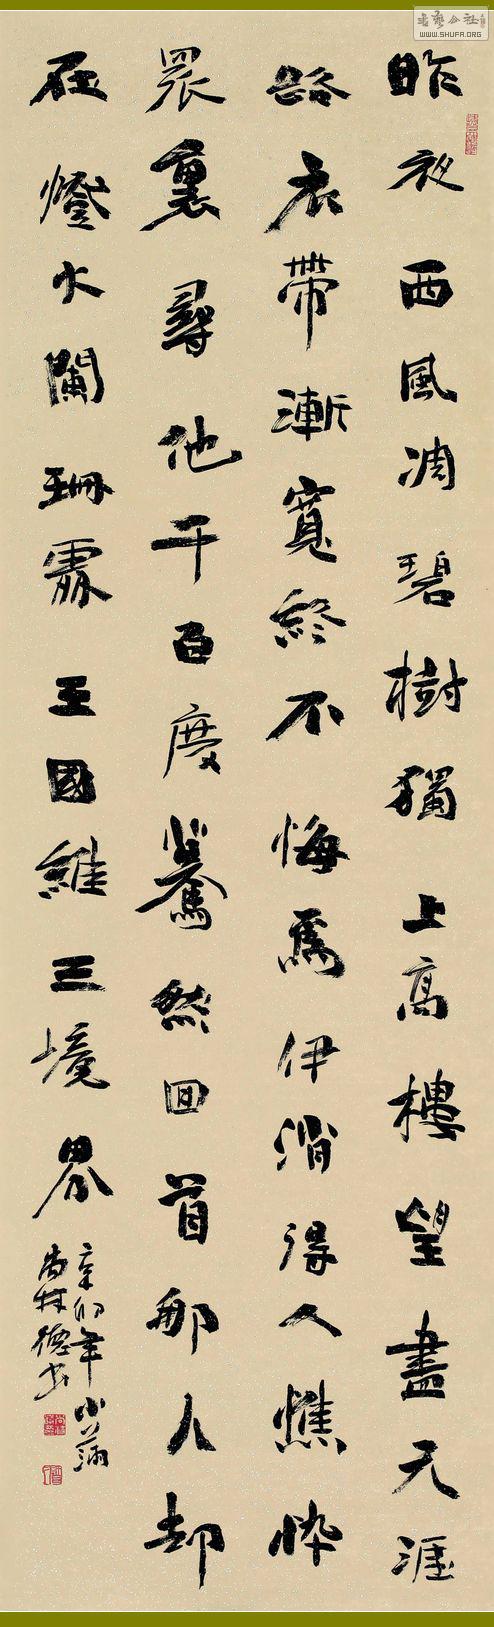 昨夜西風凋碧樹獨上高樓望盡天涯
路衣帶漸寬終不悔為伊消得人憔悴
眾裏尋他千百度驀然回首那人却
在燈火闌珊處王國維三境界
辛卯年小滿
尚林德書
書藝公社
WWW.SHUFA.ORG